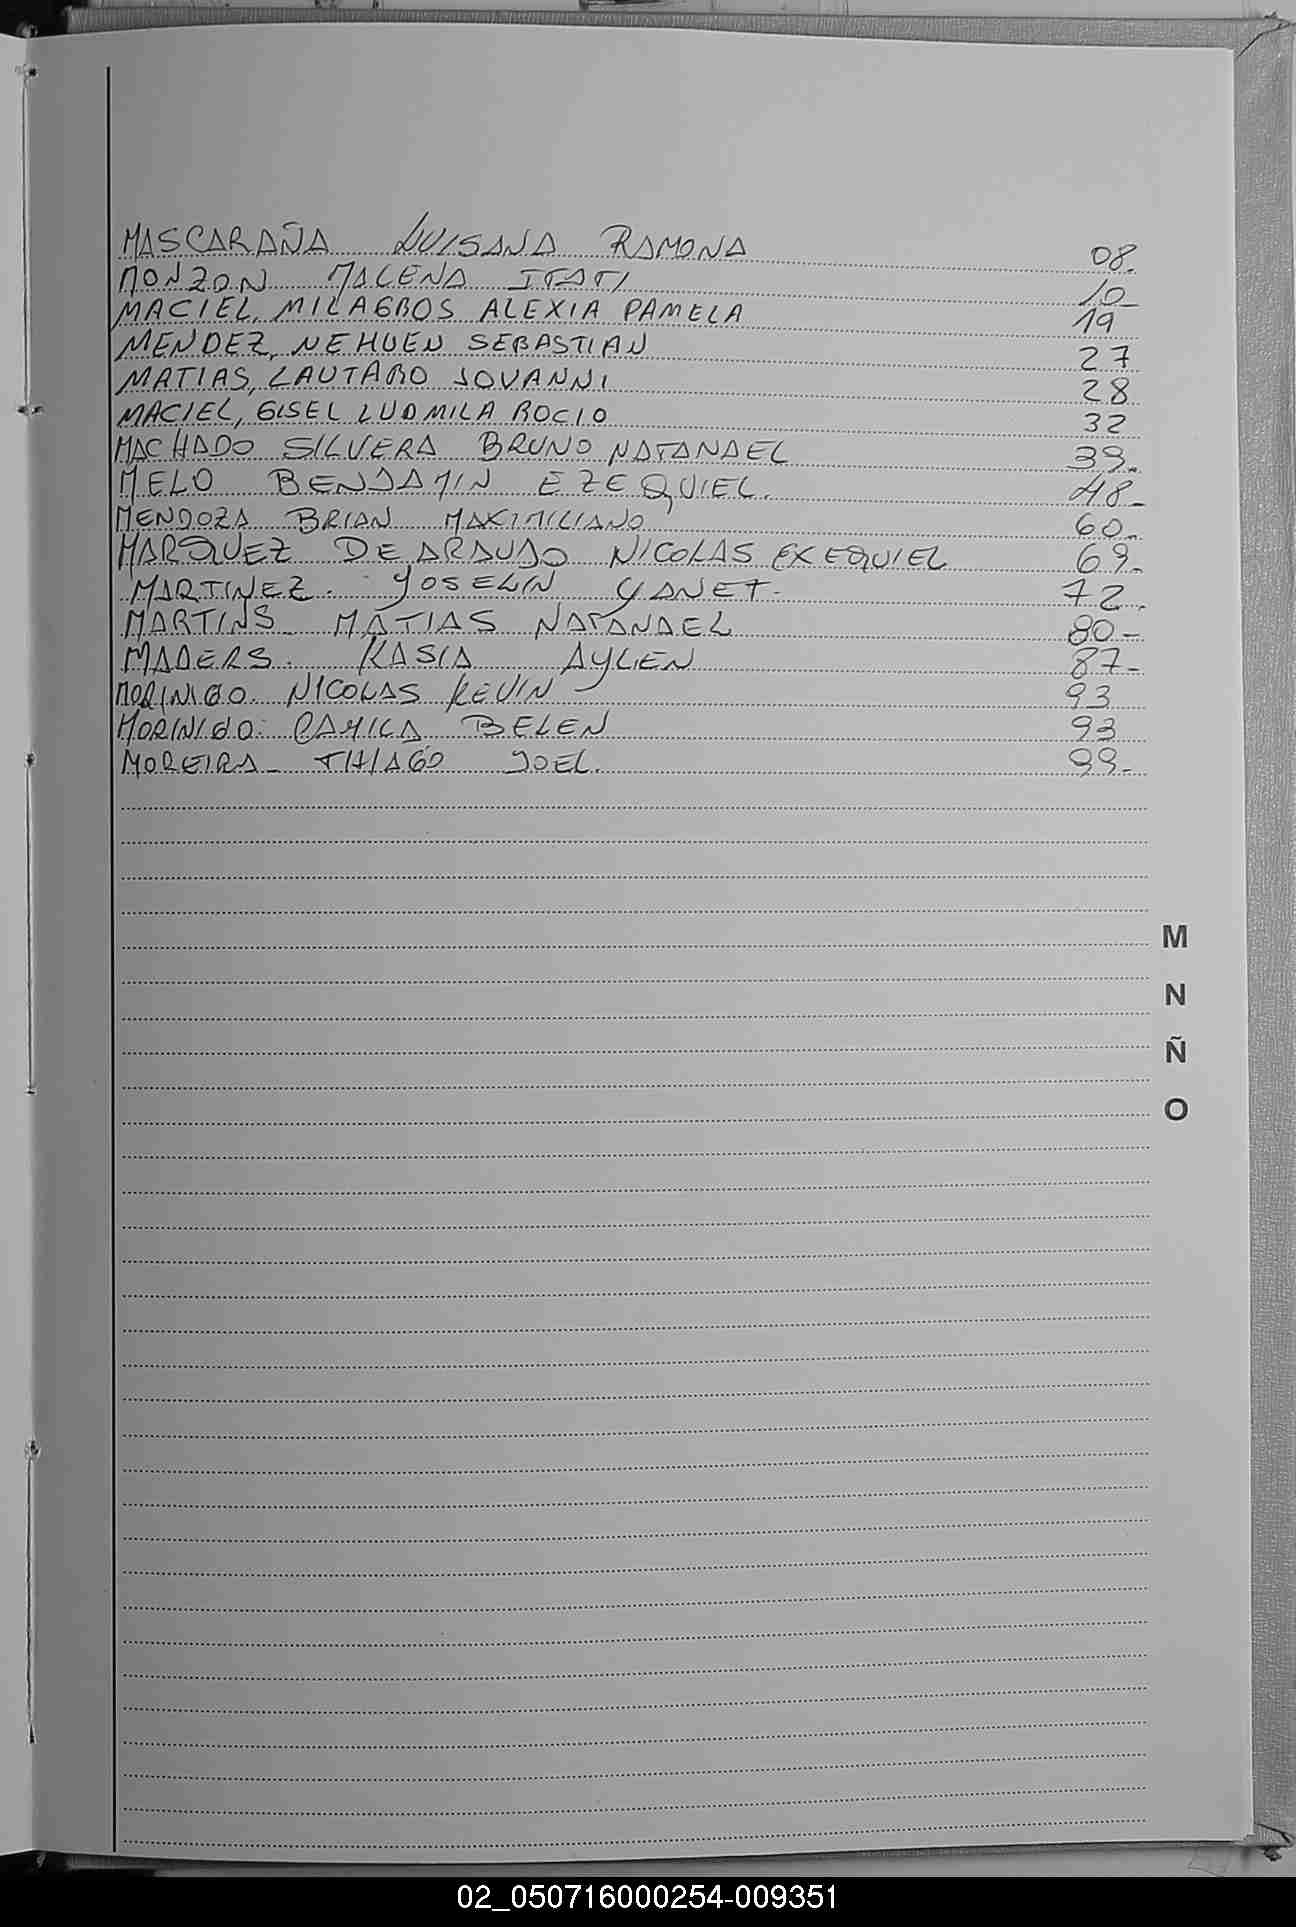 MASCARAÑA LUISANA RAMONA 08.
MONZON MALENA ITATI 10-
MACIEL, MILAGROS ALEXIA PAMELA 19
MENDEZ, NEHUEN SEBASTIAN 27
MATIAS, LAUTARO JOVANNI 28
MACIEL, GISEL LUDMILA ROCIO 32
MACHADO SILVERA BRUNO NATANAEL 39.
MELO BENJAMIN EZEQUIEL. 48-
MENDOZA BRIAN MAXIMILIANO 60.
MARQUEZ DE ARAUJO NICOLAS EXEQUIEL 69.
MARTINEZ. YOSELIN YANET. 72.
MARTINS MATIAS NATANAEL 80-
MADERS. KASIA AYLEN 87-
MORINIGO. NICOLAS KEVIN 93
MORINIGO. CAMILA BELEN 93
MOREIRA- THIAGO JOEL. 99-
M
N
Ñ
O
02_050716000254-009351